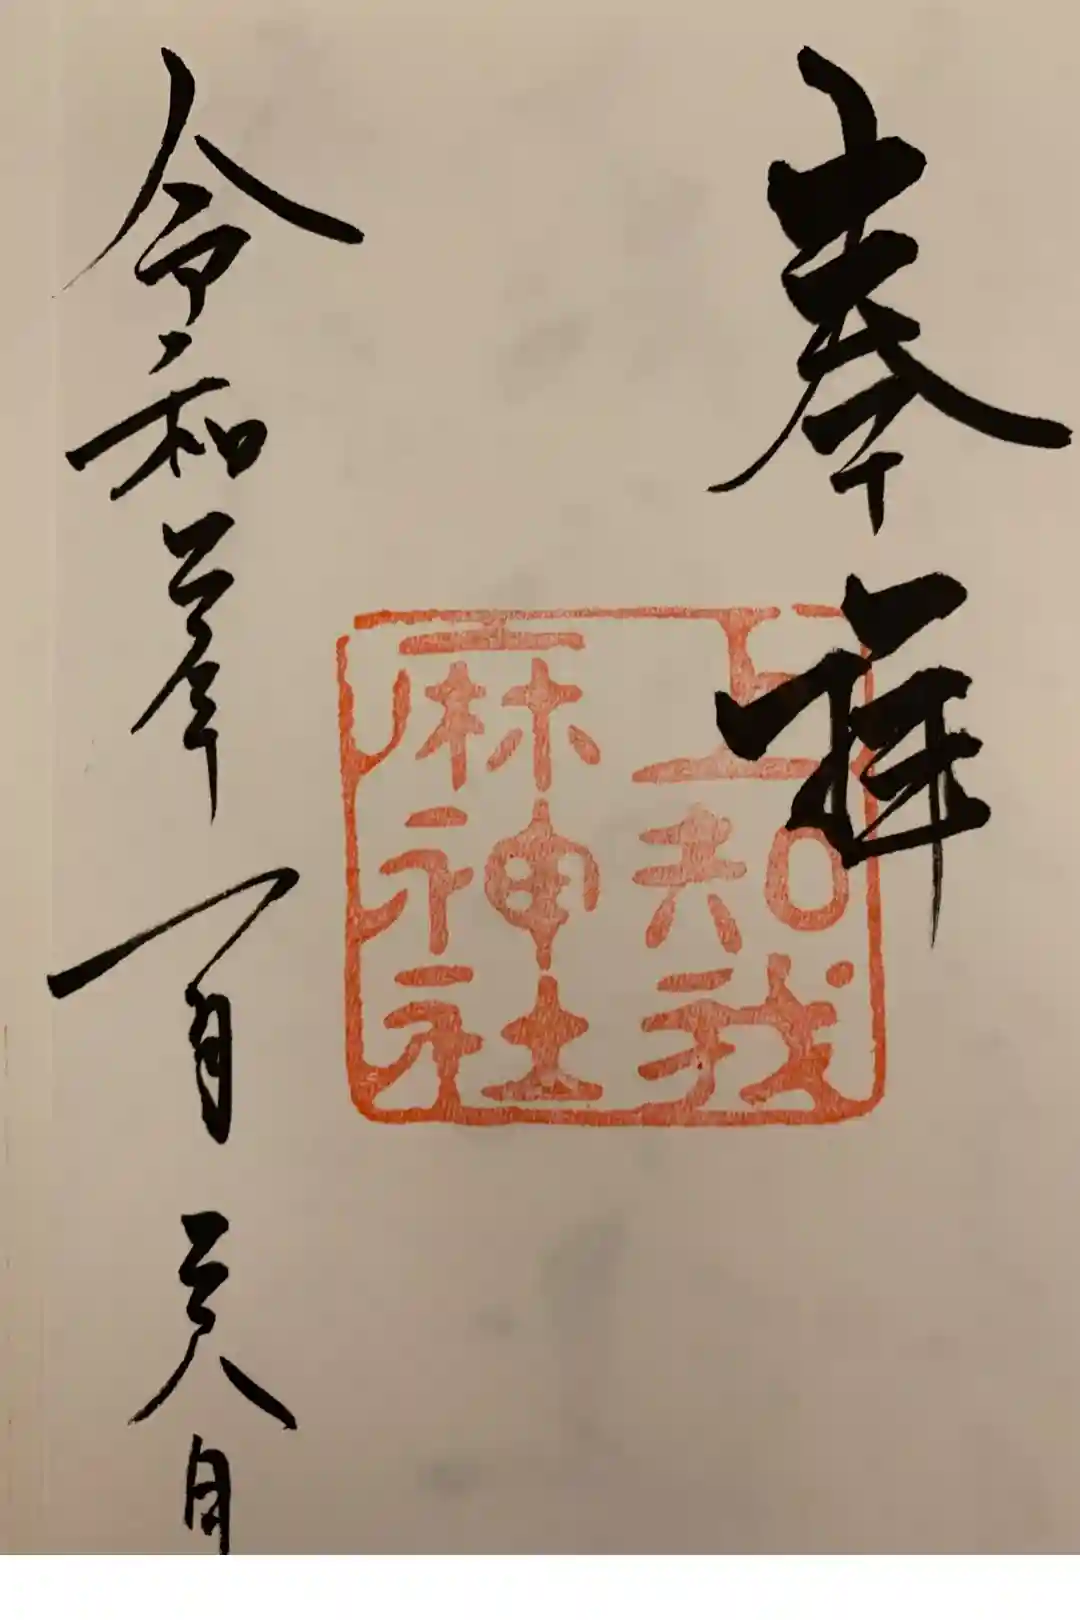 奉拝
上知我
麻神社
令和年一月八日